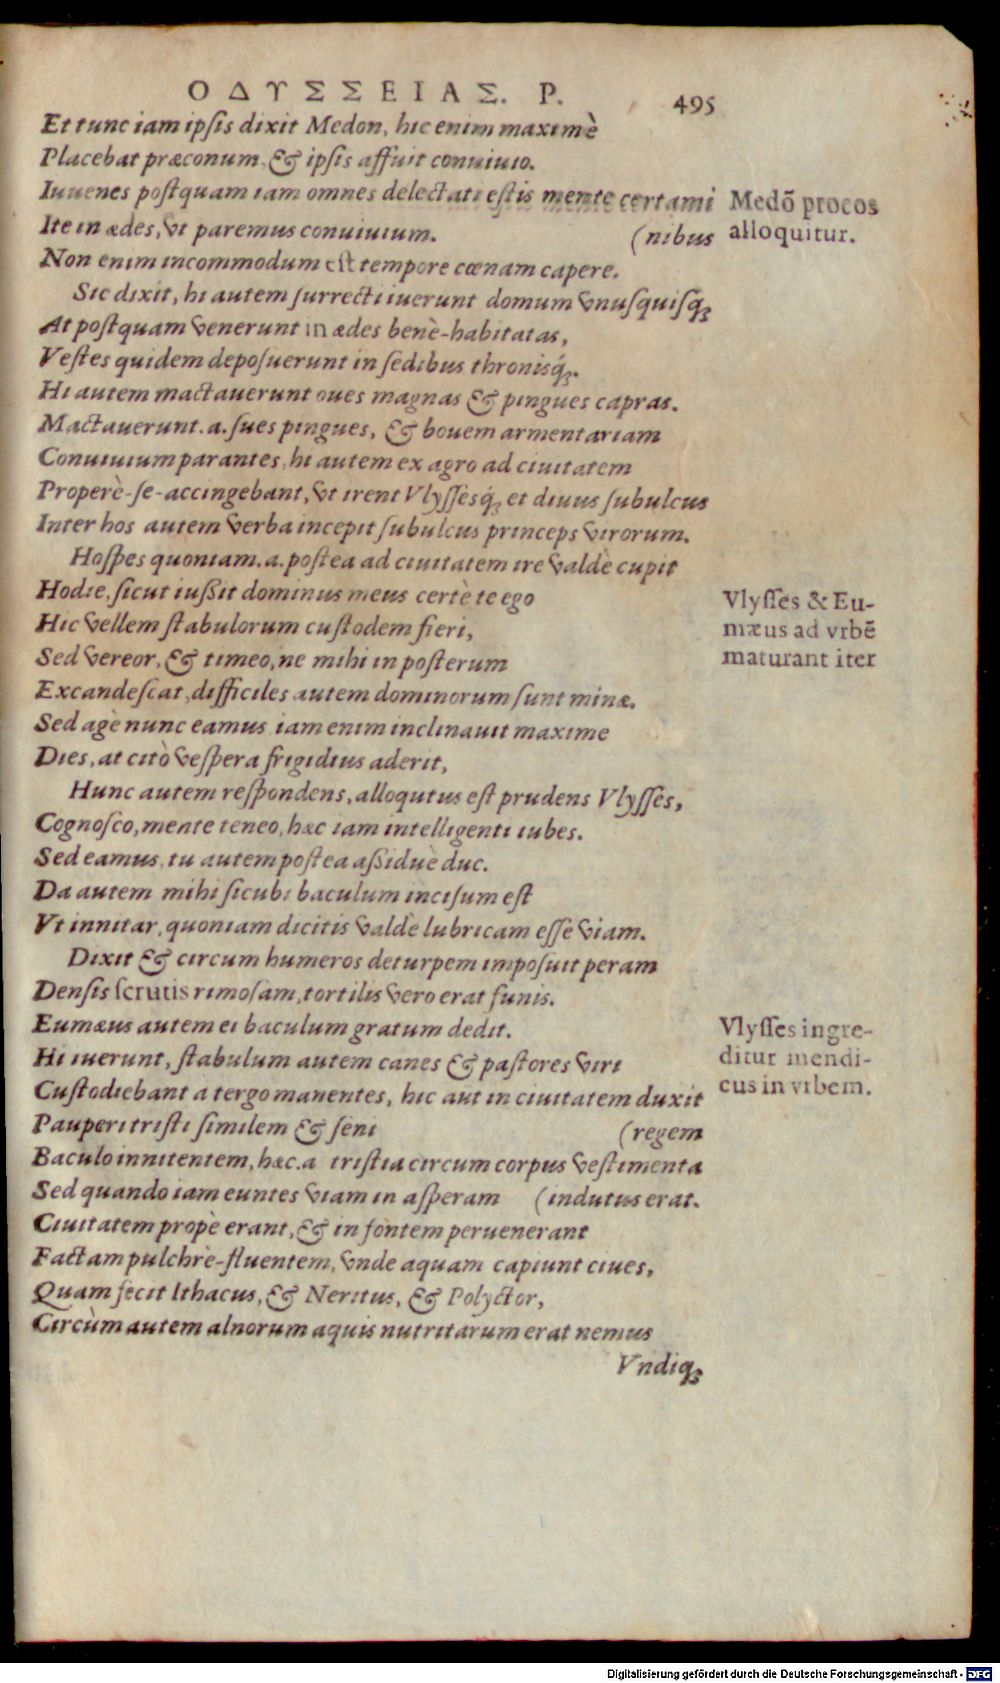 ΟΔΥΣΣΕΙΑΣ. Ρ. 495
Et tunc iam ipſis dixit Medon, hic enim maximè
Placebat præconum, & ipſis affuit conuiuio.
Iuuenes poſtquam iam omnes delectati eſtis mente certami
(nibus
Ite in ædes, vt paremus conuiuium.
Medō procos
alloquitur.
Non enim incommodum eſt tempore cœnam capere.
Sic dixit, hi autem ſurrecti iuerunt domum vnuſquiſq;
At poſtquam venerunt in ædes benè-habitatas,
Veſtes quidem depoſuerunt in ſedibus thronisq́;.
Hi autem mactauerunt oues magnas & pingues capras.
Mactauerunt .a. ſues pingues, & bouem armentariam
Conuiuium parantes, hi autem ex agro ad ciuitatem
Properè-ſe-accingebant, vt irent Vlyſſesq́; et diuus ſubulcus
Inter hos autem verba incepit ſubulcus princeps virorum.
Hoſpes quoniam .a. poſtea ad ciuitatem ire valdè cupit
Hodie, ſicut iuſſit dominus meus certè te ego
Hic vellem ſtabulorum cuſtodem fieri,
Sed vereor, & timeo, ne mihi in poſterum
Vlyſſes & Eu-
mæus ad vrbē
maturant iter
Excandeſcat, difficiles autem dominorum ſunt minæ.
Sed agè nunc eamus iam enim inclinauit maxime
Dies, at citò veſpera frigidius aderit,
Hunc autem reſpondens, alloqutus eſt prudens Vlyſſes,
Cognoſco, mente teneo, hæc iam intelligenti iubes.
Sed eamus, tu autem poſtea aſſiduè duc.
Da autem mihi ſicubi baculum inciſum eſt
Vt innitar, quoniam dicitis valdè lubricam eſſe viam.
Dixit & circum humeros deturpem impoſuit peram
Denſis ſcrutis rimoſam, tortilis vero erat funis.
Eumæus autem ei baculum gratum dedit.
Hi iuerunt, ſtabulum autem canes & paſtores viri
Vlyſſes ingre-
ditur mendi-
cus in vrbem.
Cuſtodiebant a tergo manentes, hic aut in ciuitatem duxit
Pauperi triſti ſimilem & ſeni (regem
Baculo innitentem, hæc .a triſtia circum corpus veſtimenta
Sed quando iam euntes viam in aſperam (indutus erat.
Ciuitatem propè erant, & in fontem peruenerant
Factam pulchrè-fluentem, vnde aquam capiunt ciues,
Quam fecit Ithacus, & Neritus, & Polyctor,
Circùm autem alnorum aquis nutritarum erat nemus
Vndiq;
Digitalisierung gefördert durch die Deutsche Forschungsgemeinschaft - DFG